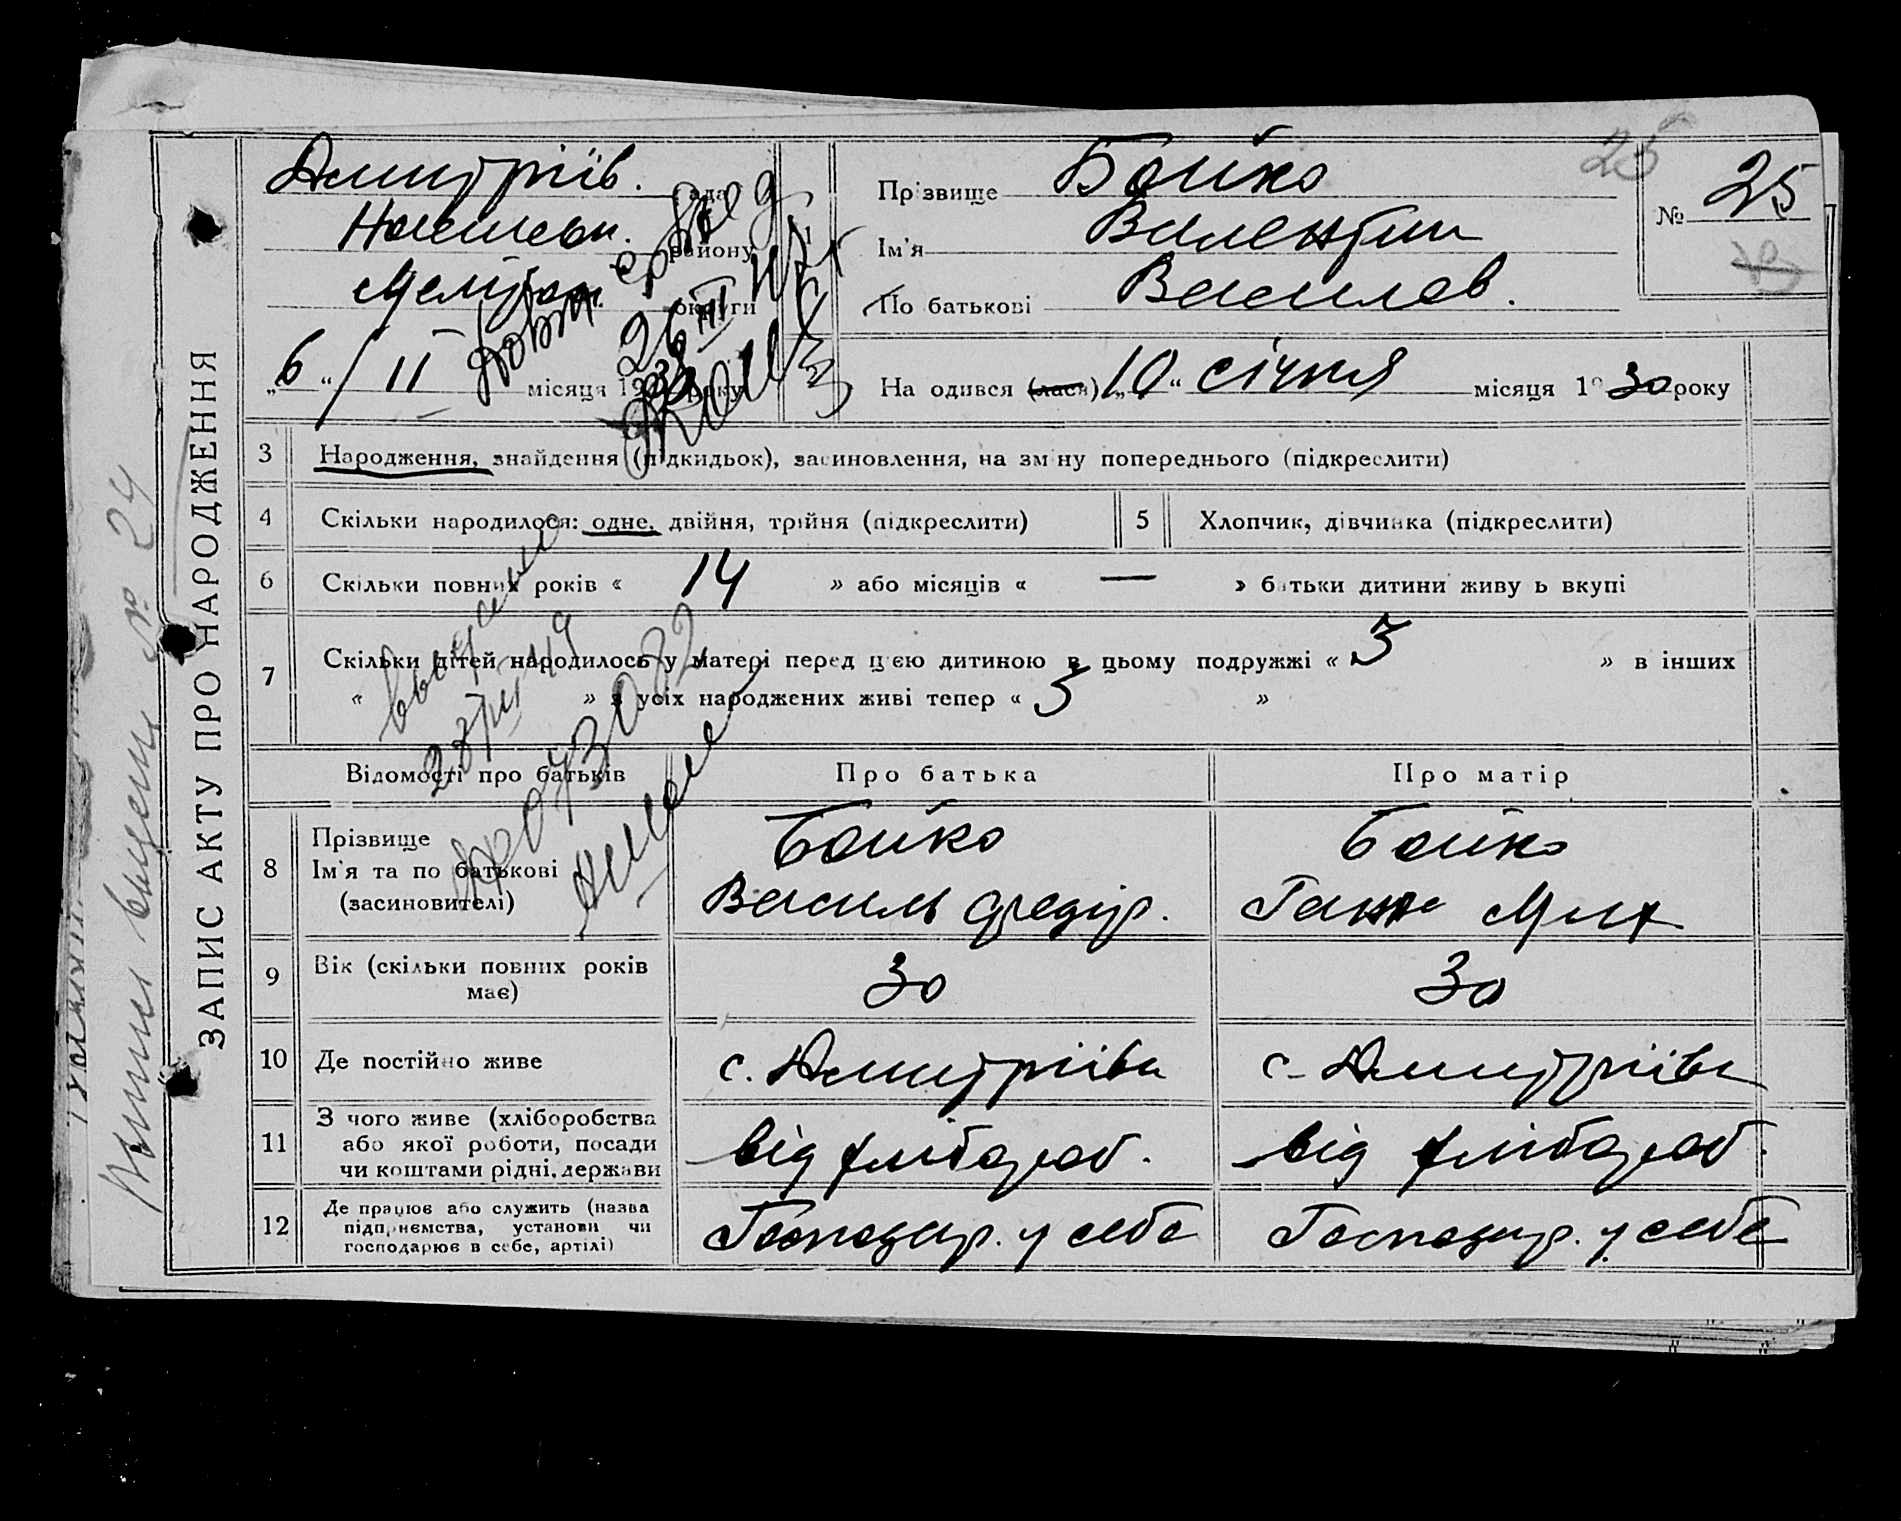 ЗАПИС АКТУ ПРО НАРОДЖЕННЯ
Дмитріїв. рада
району
округи
„6“ / II місяця 19 року
25
№ 25
Прізвище Бойко
Ім'я Валентин
По батькові Василев.
Народився (лася) „10“ січня місяця 1930 року
3 Народження, знайдення (підкидьок), засиновлення, на зміну попереднього (підкреслити)
4 Скільки народилося: одне, двійня, трійня (підкреслити)
5 Хлопчик, дівчинка (підкреслити)
6 Скільки повних років « 14 » або місяців « — » батьки дитини живуть вкупі
7 Скільки дітей народилось у матері перед цією дитиною в цьому подружжі « 3 » в інших
« » з усіх народжених живі тепер « 3 »
Відомості про батьків Про батька Про матір
8 Прізвище
Ім'я та по батькові
(засиновителі)
Бойко
Василь Федір.
Бойко
Ганна Мих
9 Вік (скільки повних років
має)
30 30
10 Де постійно живе с. Дмитріївка с. Дмитріївка
11 З чого живе (хліборобства
або якої роботи, посади
чи коштами рідні, держави
від хлібороб. від хлібороб.
12 Де працює або служить (назва
підприємства, установи чи
господарює в себе, артілі)
Господар. у себе Господар. у себе